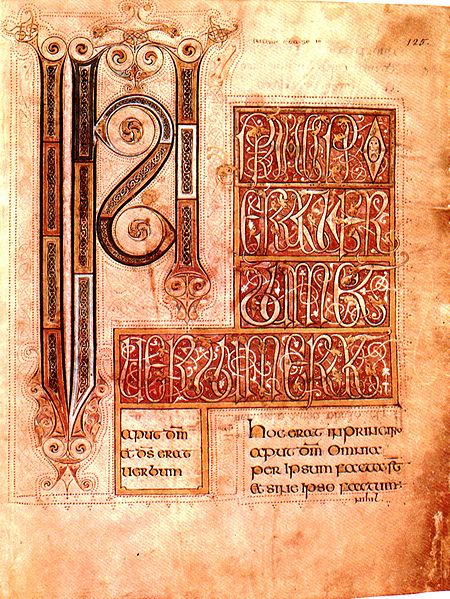 125.
INP
RINCIPIO
ERATUER
BUM ET
UERBUM ERAT
aput dm̄
et ds̄ erat
uerbum
hoc erat in principio
aput dm̄ omnia
per ipsum facta st̄
et sine ipso factum
nihil